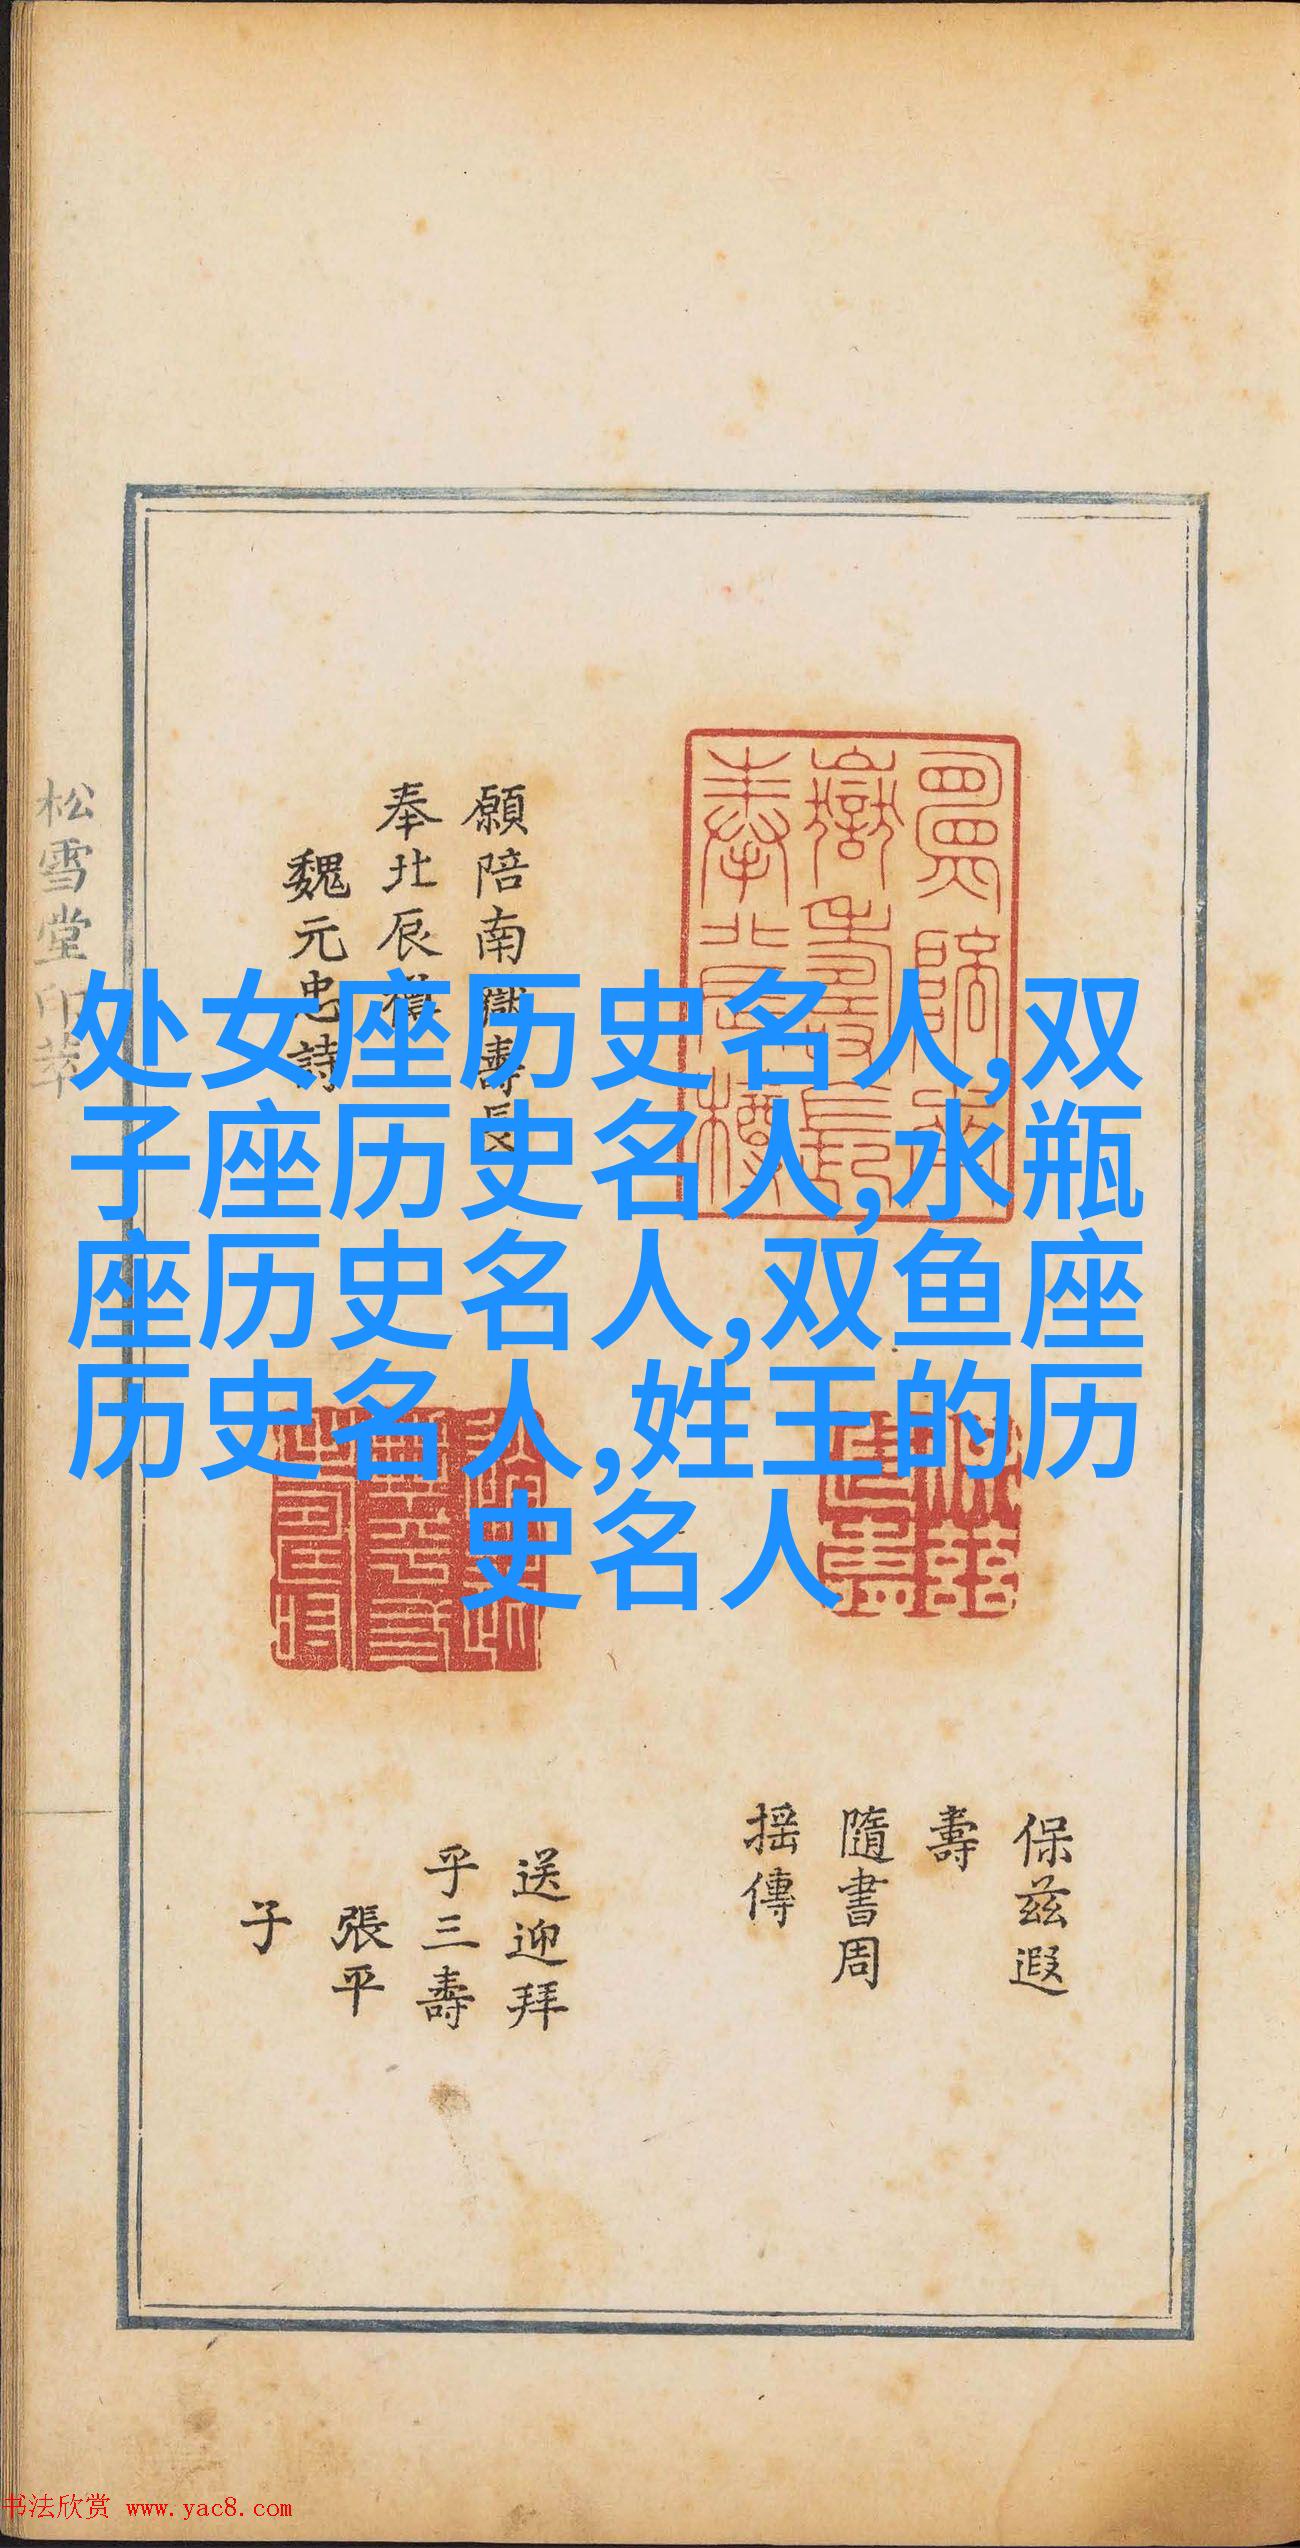 处女座历史名人,双
子座历史名人,水瓶
座历史名人,双鱼座
历史名人,姓王的历
史名人
願陪南嶽壽長
奉北辰樽
魏元忠詩
保茲遐
壽
隨書周
搖傳
送迎拜
乎三壽
張平
子
松雪堂印萃
书法欣赏 www.yac8.com